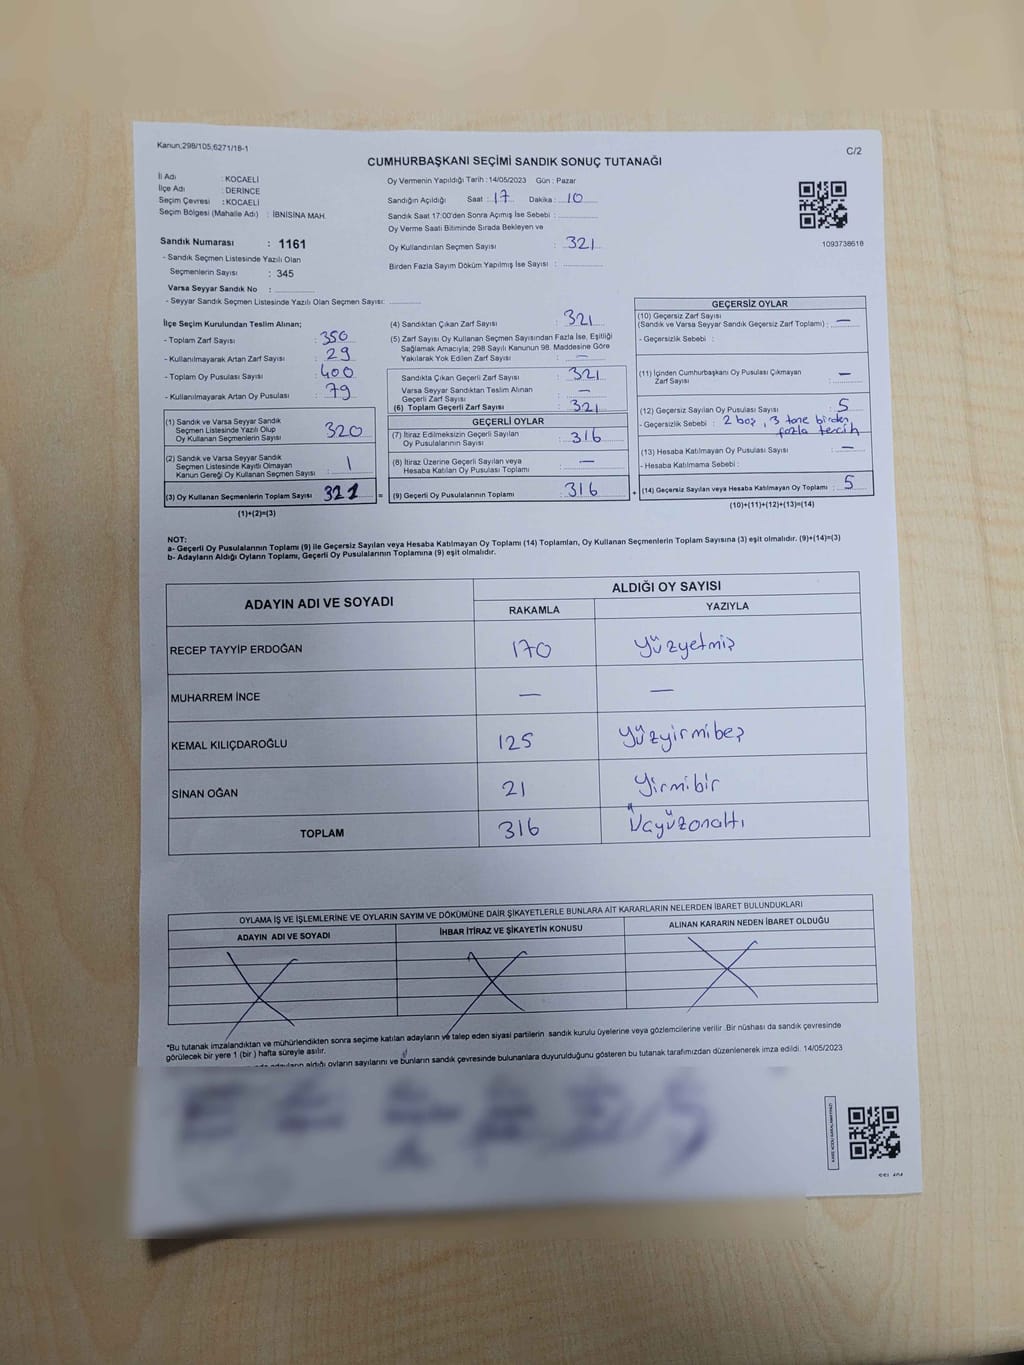 Kanun;298/105;6271/18-1
C/2
CUMHURBAŞKANI SEÇİMİ SANDIK SONUÇ TUTANAĞI
İl Adı : KOCAELİ
İlçe Adı : DERİNCE
Seçim Çevresi : KOCAELİ
Seçim Bölgesi (Mahalle Adı) : İBNİSİNA MAH.
Sandık Numarası : 1161
- Sandık Seçmen Listesinde Yazılı Olan
Seçmenlerin Sayısı : 345
Varsa Seyyar Sandık No :
- Seyyar Sandık Seçmen Listesinde Yazılı Olan Seçmen Sayısı:
Oy Vermenin Yapıldığı Tarih : 14/05/2023 Gün : Pazar
Sandığın Açıldığı Saat : 17 Dakika : 10
Sandık Saat 17:00'den Sonra Açmış İse Sebebi :
Oy Verme Saati Bitiminde Sırada Bekleyen ve
Oy Kullandırılan Seçmen Sayısı : 321
Birden Fazla Sayım Döküm Yapılmış İse Sayısı :
1093738618
İlçe Seçim Kurulundan Teslim Alınan;
- Toplam Zarf Sayısı : 350
- Kullanılmayarak Artan Zarf Sayısı : 29
- Toplam Oy Pusulası Sayısı : 400
- Kullanılmayarak Artan Oy Pusulası : 79
(1) Sandık ve Varsa Seyyar Sandık
Seçmen Listesinde Yazılı Olup
Oy Kullanan Seçmenlerin Sayısı 320
(2) Sandık ve Varsa Seyyar Sandık
Seçmen Listesinde Kayıtlı Olmayan
Kanun Gereği Oy Kullanan Seçmen Sayısı : 1
(3) Oy Kullanan Seçmenlerin Toplam Sayısı 321 =
(1)+(2)=(3)
(4) Sandıktan Çıkan Zarf Sayısı : 321
(5) Zarf Sayısı Oy Kullanan Seçmen Sayısından Fazla İse, Eşitliği
Sağlamak Amacıyla; 298 Sayılı Kanunun 98. Maddesine Göre
Yakılarak Yok Edilen Zarf Sayısı : —
Sandıkta Çıkan Geçerli Zarf Sayısı : 321
Varsa Seyyar Sandıktan Teslim Alınan
Geçerli Zarf Sayısı : —
(6) Toplam Geçerli Zarf Sayısı : 321
GEÇERLİ OYLAR
(7) İtiraz Edilmeksizin Geçerli Sayılan
Oy Pusulalarının Sayısı : 316
(8) İtiraz Üzerine Geçerli Sayılan veya
Hesaba Katılan Oy Pusulası Toplamı : —
(9) Geçerli Oy Pusulalarının Toplamı : 316 +
GEÇERSİZ OYLAR
(10) Geçersiz Zarf Sayısı
(Sandık ve Varsa Seyyar Sandık Geçersiz Zarf Toplamı) : —
- Geçersizlik Sebebi :
(11) İçinden Cumhurbaşkanı Oy Pusulası Çıkmayan
Zarf Sayısı : —
(12) Geçersiz Sayılan Oy Pusulası Sayısı : 5
- Geçersizlik Sebebi : 2 boş, 3 tane birden
fazla tercih
(13) Hesaba Katılmayan Oy Pusulası Sayısı : —
- Hesaba Katılmama Sebebi :
(14) Geçersiz Sayılan veya Hesaba Katılmayan Oy Toplamı : 5
(10)+(11)+(12)+(13)=(14)
NOT:
a- Geçerli Oy Pusulalarının Toplamı (9) ile Geçersiz Sayılan veya Hesaba Katılmayan Oy Toplamı (14) Toplamları, Oy Kullanan Seçmenlerin Toplam Sayısına (3) eşit olmalıdır. (9)+(14)=(3)
b- Adayların Aldığı Oyların Toplamı, Geçerli Oy Pusulalarının Toplamına (9) eşit olmalıdır.
ADAYIN ADI VE SOYADI ALDIĞI OY SAYISI
RAKAMLA YAZIYLA
RECEP TAYYİP ERDOĞAN 170 yüzyetmiş
MUHARREM İNCE — —
KEMAL KILIÇDAROĞLU 125 yüzyirmibeş
SİNAN OĞAN 21 yirmibir
TOPLAM 316 Üçyüzonaltı
OYLAMA İŞ VE İŞLEMLERİNE VE OYLARIN SAYIM VE DÖKÜMÜNE DAİR ŞİKAYETLERLE BUNLARA AİT KARARLARIN NELERDEN İBARET BULUNDUKLARI
ADAYIN ADI VE SOYADI İHBAR İTİRAZ VE ŞİKAYETİN KONUSU ALINAN KARARIN NEDEN İBARET OLDUĞU
*Bu tutanak imzalandıktan ve mühürlendikten sonra seçime katılan adayların ve talep eden siyasi partilerin sandık kurulu üyelerine veya gözlemcilerine verilir .Bir nüshası da sandık çevresinde
görülecek bir yere 1 (bir ) hafta süreyle asılır.
adayların aldığı oyların sayılarını ve bunların sandık çevresinde bulunanlara duyurulduğunu gösteren bu tutanak tarafımızdan düzenlenerek imza edildi. 14/05/2023